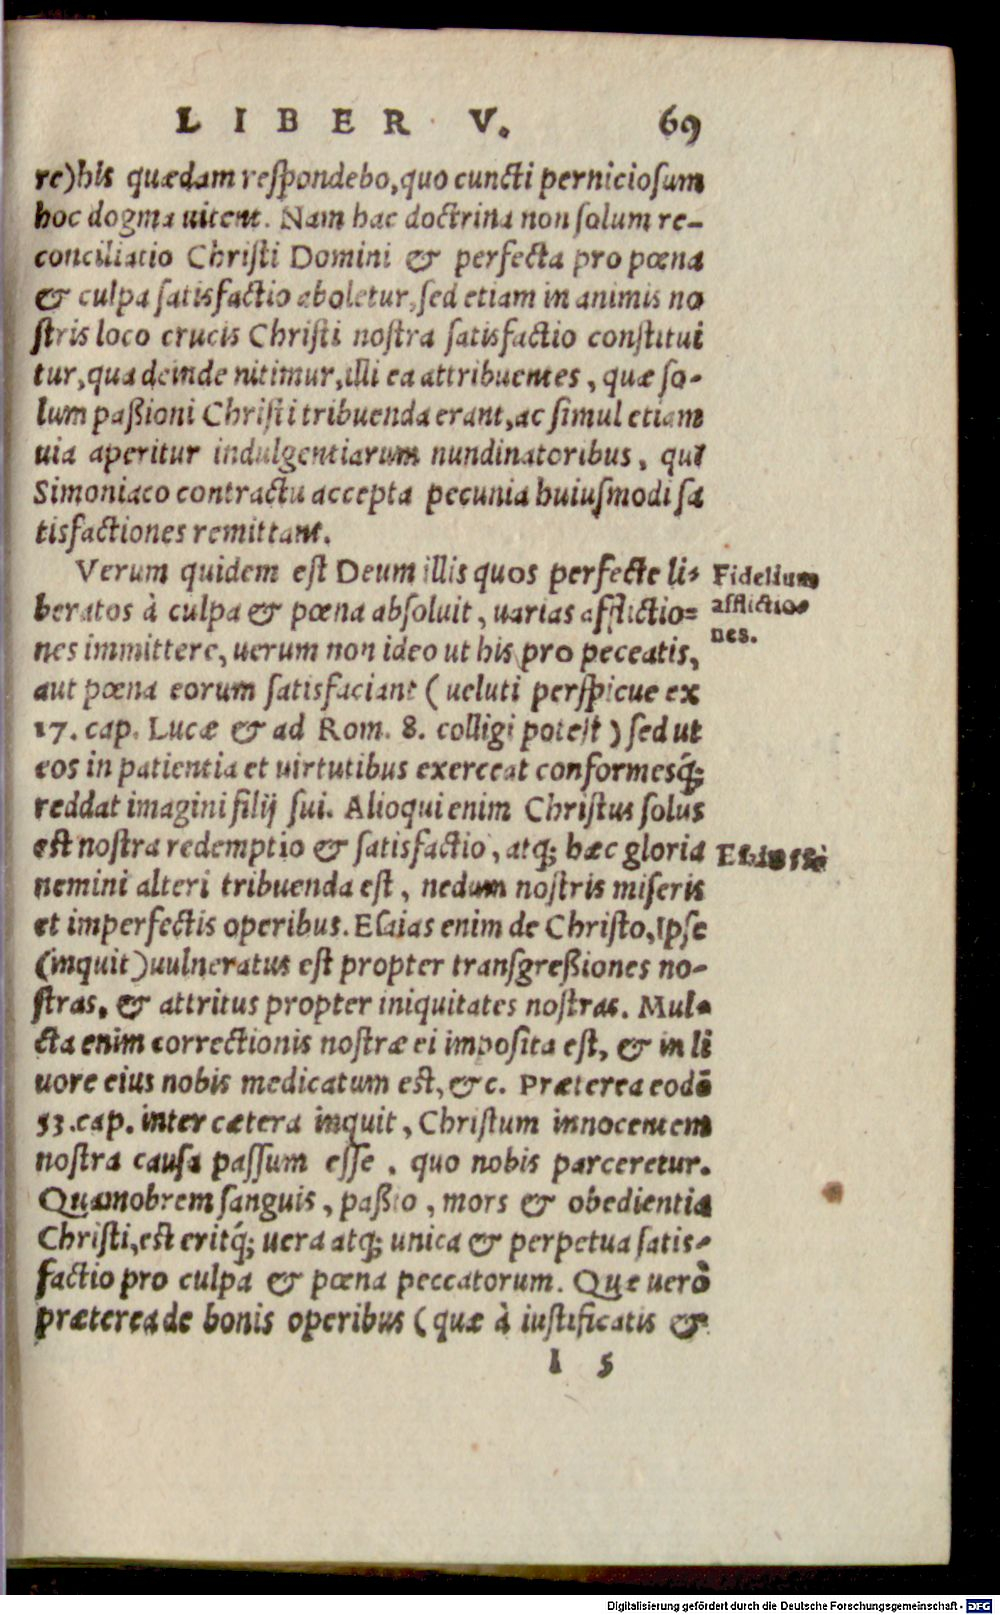 LIBER V. 69
re) his quædam respondebo, quo cuncti perniciosum
hoc dogma uitent. Nam hac doctrina non solum re-
conciliatio Christi Domini & perfecta pro pœna
& culpa satisfactio aboletur, sed etiam in animis no
stris loco crucis Christi nostra satisfactio constitui
tur, qua deinde nitimur, illi ea attribuentes, quæ so-
lum paßioni Christi tribuenda erant, ac simul etiam
uia aperitur indulgentiarum nundinatoribus, qui
Simoniaco contractu accepta pecunia huiusmodi sa
tisfactiones remittant.
Verum quidem est Deum illis quos perfecte li-
beratos à culpa & pœna absoluit, uarias afflictio=
nes immittere, uerum non ideo ut his pro peccatis,
aut pœna eorum satisfaciant (ueluti perspicue ex
17. cap. Lucæ & ad Rom. 8. colligi potest) sed ut
eos in patientia et uirtutibus exerceat conformesq́;
reddat imagini filij sui. Alioqui enim Christus solus
est nostra redemptio & satisfactio, atq; hæc gloria
nemini alteri tribuenda est, nedum nostris miseris
et imperfectis operibus. Esaias enim de Christo, Ipse
(inquit) uulneratus est propter transgreßiones no-
stras, & attritus propter iniquitates nostras. Mul-
cta enim correctionis nostræ ei imposita est, & in li
uore eius nobis medicatum est, &c. Præterea eodē
53. cap. inter cætera inquit, Christum innocentem
nostra causa passum esse, quo nobis parceretur.
Quamobrem sanguis, paßio, mors & obedientia
Christi, est eritq́; uera atq; unica & perpetua satis-
factio pro culpa & pœna peccatorum. Quæ uerò
præterea de bonis operibus (quæ à iustificatis &
I 5
Fidelium
afflictio-
nes.
Digitalisierung gefördert durch die Deutsche Forschungsgemeinschaft - DFG